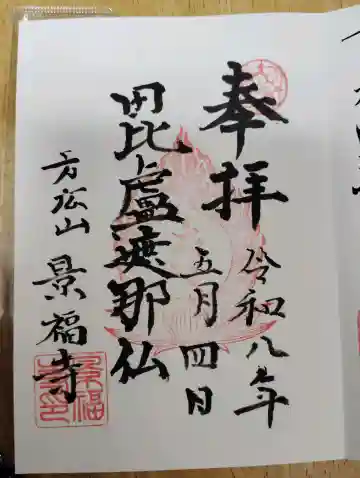 奉拝
令和八年
五月四日
毘盧遮那仏
万松山 景福寺
景福寺印